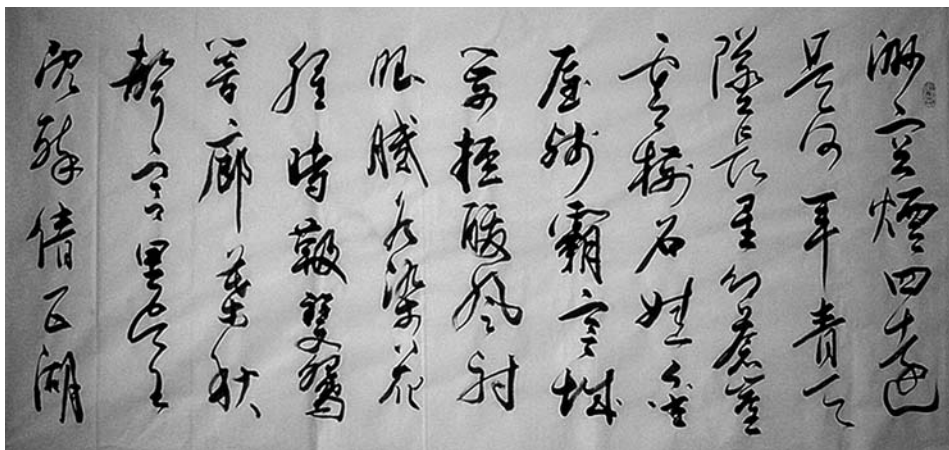 渺空煙四遠
是何年青天
墜長星幻蒼崖
雲樹名娃金
屋殘霸宮城
箭徑酸風射
眼膩水染花
腥時靸雙鴛
響廊葉秋
聲宮里吳王
沉醉倩五湖